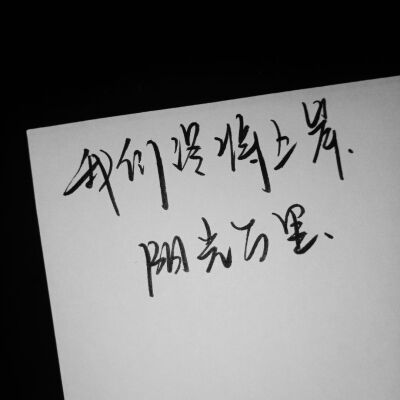 我们终将上岸、
阳光万里、